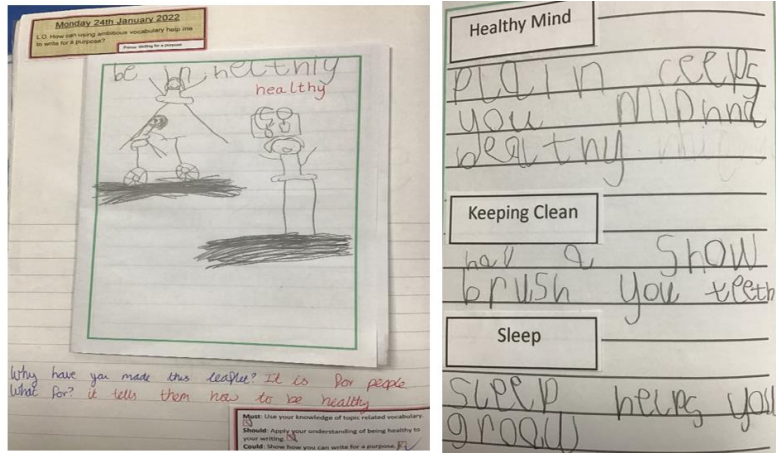 Monday 24th January 2022
L.O. How can using ambitious vocabulary help me
to write for a purpose?
be in helthly
healthy
Why have you made this leaflet? It is for people
What for? it tells them how to be healthy
Must: Use your knowledge of topic related vocabulary.
Should: Apply your understanding of being healthy to
your writing.
Could: Show how you can write for a purpose.
Healthy Mind
plain ceeps
you
Keeping Clean
a Show
brush you teeth
Sleep
sleep helps you
groow